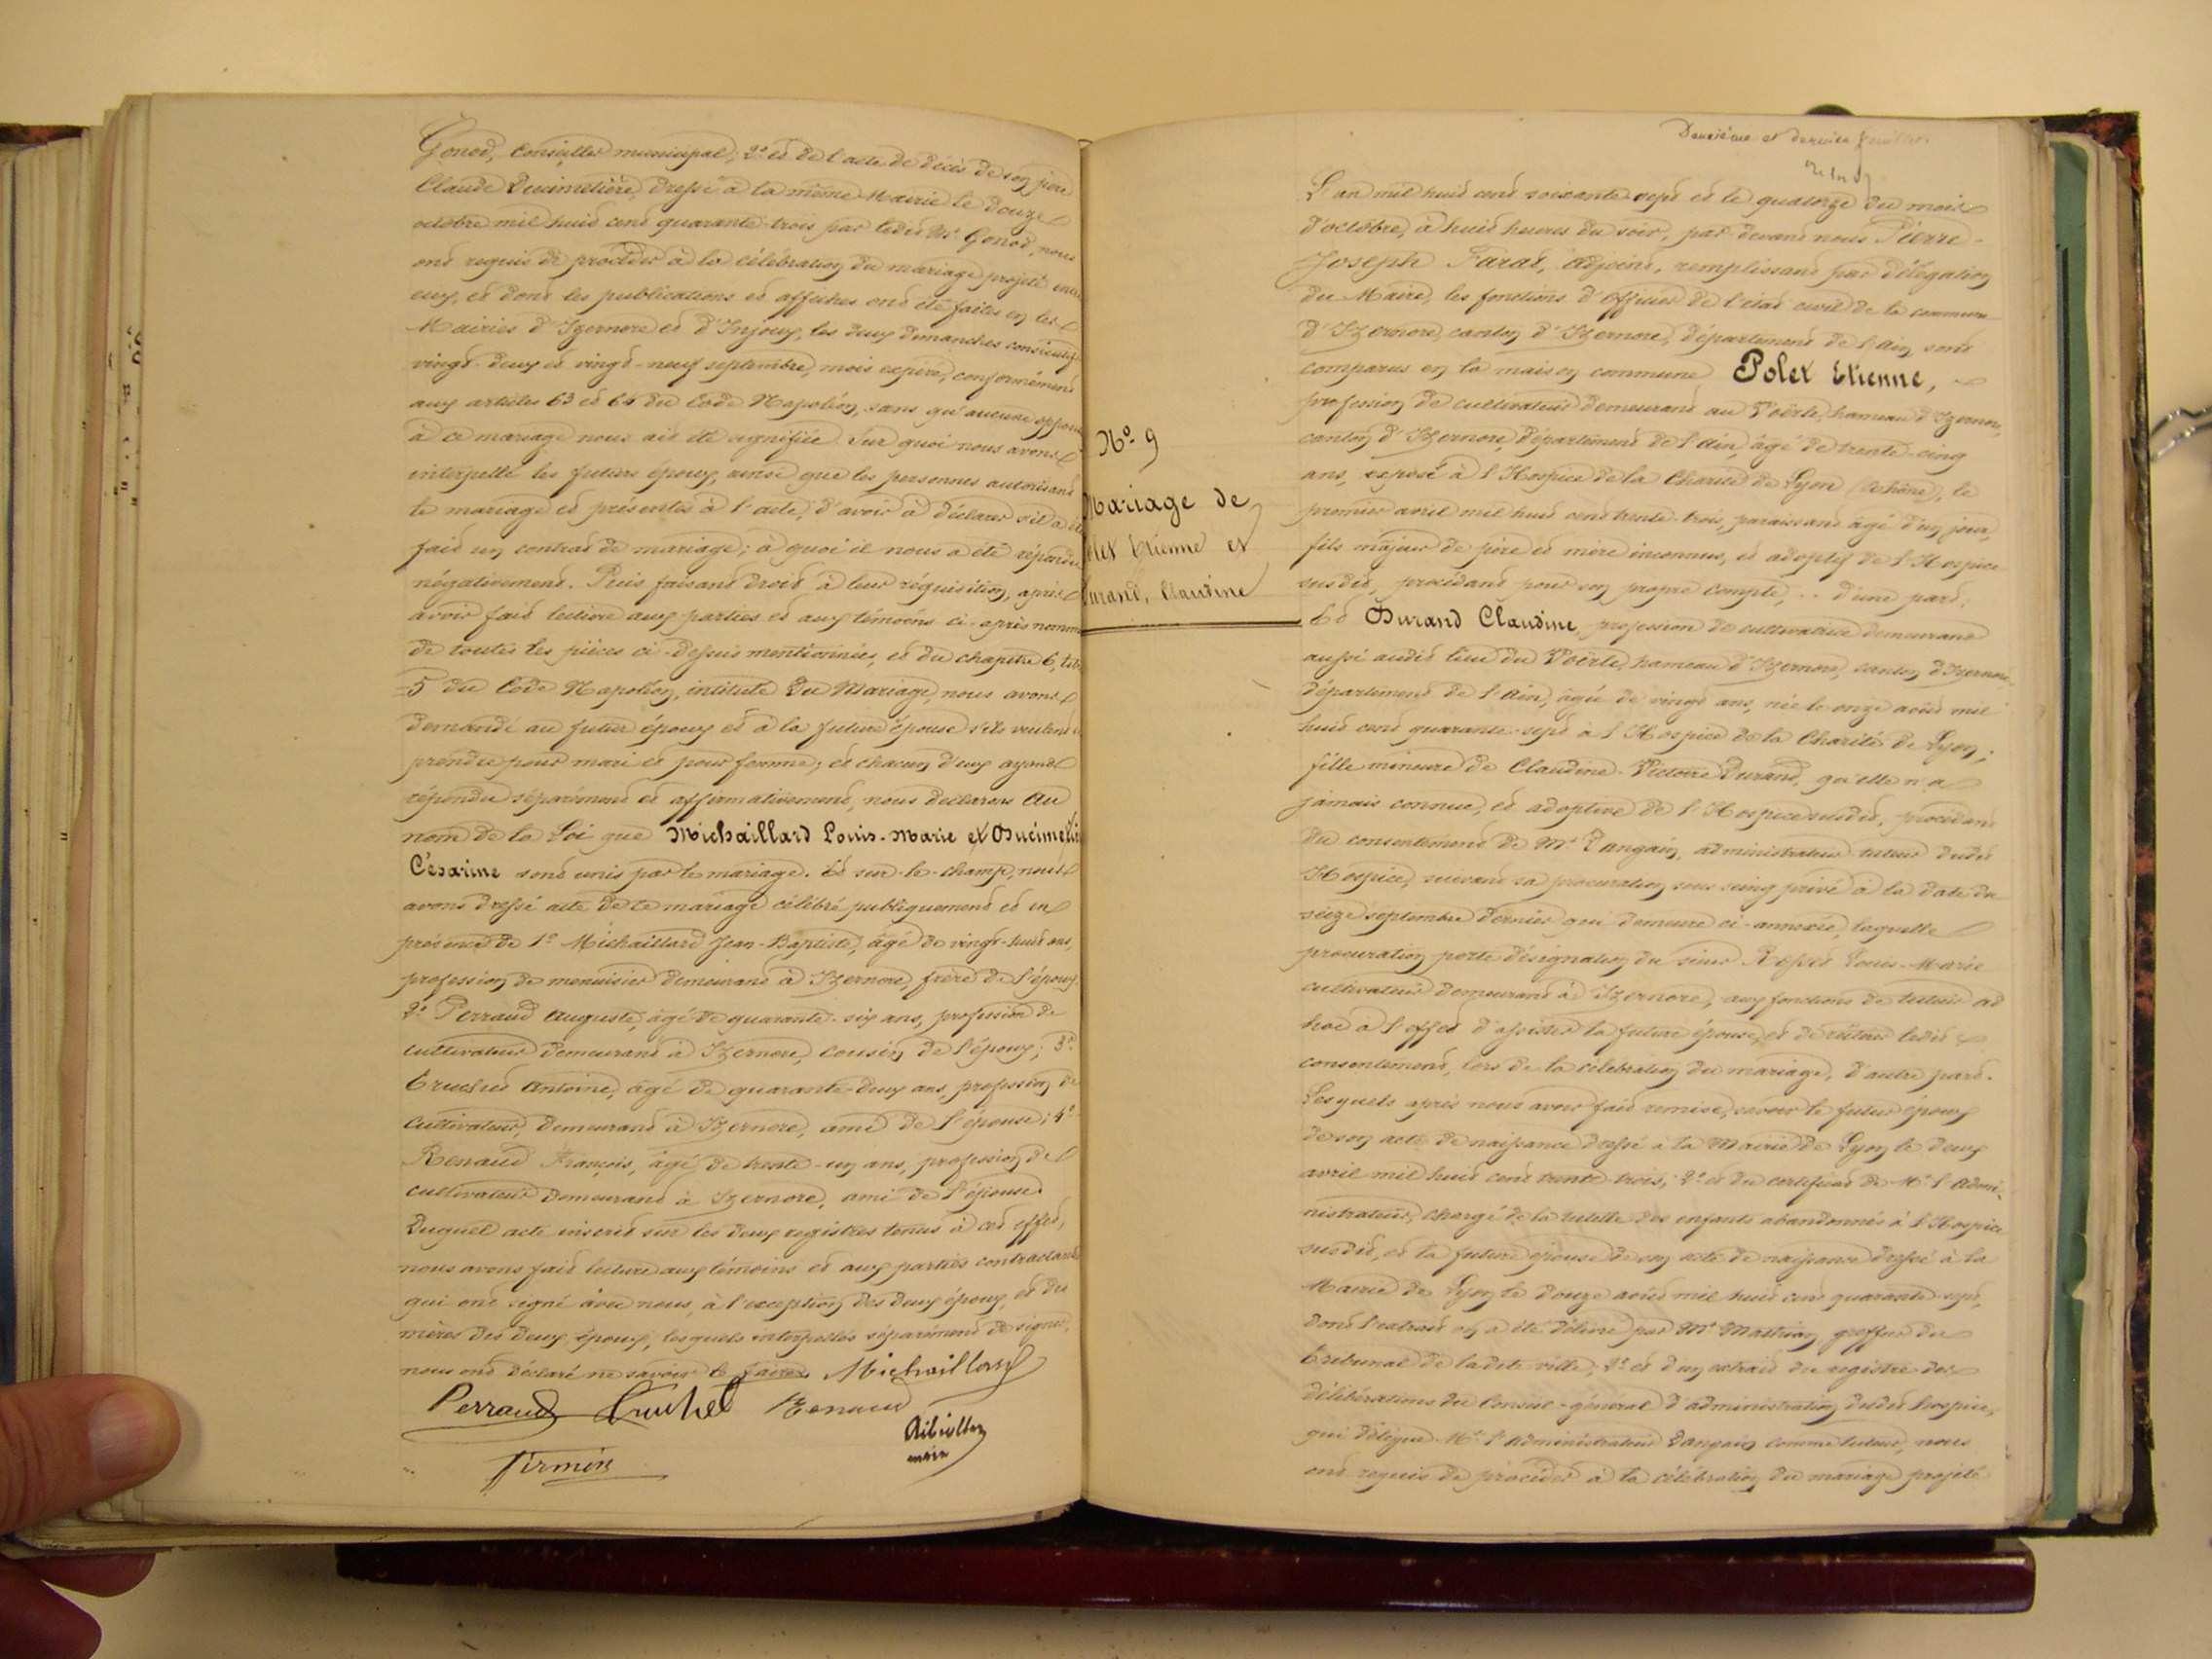 Gonod, Conseiller municipal; 2º et de l'acte de décès de son père
Claude Ducimetière, dressé à la même Mairie le douze
octobre mil huit cent quarante-trois par ledit Mr Gonod, nous
ont requis de procéder à la célébration du mariage projeté entre
eux, et dont les publications et affiches ont été faites en les
Mairies d'Izernore et d'Injoux, les deux dimanches consécutifs
vingt-deux et vingt-neuf septembre, mois expiré, conformément
aux articles 63 et 64 du Code Napoléon, sans qu'aucune
à ce mariage nous ait été signifiée. Sur quoi nous avons
interpellé les futurs époux, ainsi que les personnes autorisant
le mariage et présentes à l'acte, d'avoir à déclarer s'il a été
fait un contrat de mariage; à quoi il nous a été répondu
négativement. Puis faisant droit à leur réquisition, après
avoir fait lecture aux parties et aux témoins ci-après nommés
de toutes les pièces ci-dessus mentionnées, et du chapitre 6, titre
5 du Code Napoléon, intitulé Du Mariage, nous avons
demandé au futur époux et à la future épouse s'ils veulent
prendre pour mari et pour femme; et chacun d'eux ayant
répondu séparément et affirmativement, nous déclarons Au
nom de la Loi que Michaillard Louis-Marie et Ducimetière
Césarine sont unis par le mariage. Et sur-le-champ, nous
avons dressé acte de ce mariage célébré publiquement et en
présence de 1º Michaillard Jean-Baptiste, âgé de vingt-huit ans,
profession de menuisier demeurant à Izernore, frère de l'époux
2º Perraud Auguste, âgé de quarante-six ans, profession de
cultivateur demeurant à Izernore, cousin de l'époux; 3º
Truchet Antoine, âgé de quarante-deux ans, profession de
cultivateur, demeurant à Izernore, ami de l'épouse; 4º
Renaud François, âgé de trente-un ans, profession de
cultivateur demeurant à Izernore, ami de l'épouse.
Duquel acte inscrit sur les deux registres tenus à cet effet,
nous avons fait lecture aux témoins et aux parties contractantes
qui ont signé avec nous, à l'exception des deux époux, et des
mères des deux époux, lesquels interpellés séparément de signer,
nous ont déclaré ne savoir le faire. Michaillard
Perraud Truchet Renaud
maire
Firmin
Nº 9
Mariage de
Polet Etienne et
Durand, Claudine
Deuxième et dernier feuillet.
L'an mil huit cent soixante-sept et le quatorze du mois
d'octobre, à huit heures du soir, par devant nous Pierre-
Joseph Farat, Adjoint, remplissant par délégation
du Maire, les fonctions d'officier de l'état civil de la commune
d'Izernore, canton d'Izernore, département de l'Ain, sont
comparus en la maison commune Polet Etienne,
profession de cultivateur demeurant au Voërle, hameau d'Izernore,
canton d'Izernore, département de l'Ain, âgé de trente-cinq
ans, exposé à l'Hospice de la Charité de Lyon (Rhône), le
premier avril mil huit cent trente-trois, paraissant âgé d'un jour,
fils majeur de père et mère inconnus, et adoptif de l'Hospice
susdit, procédant pour son propre compte, .. d'une part;
Et Durand Claudine, profession de cultivatrice demeurant
aussi audit lieu du Voërle, hameau d'Izernore, canton d'Izernore
département de l'Ain, âgée de vingt ans, née le onze août mil
huit cent quarante-sept à l'Hospice de la Charité de Lyon;
fille mineure de Claudine-Victoire Durand, qu'elle n'a
jamais connue, et adoptive de l'Hospice susdit, procédant
du consentement de Mr Dangain, administrateur tuteur dudit
Hospice, suivant sa procuration sous seing privé à la date du
seize septembre dernier qui demeure ci-annexée, laquelle
procuration porte désignation du sieur Louis-Marie
cultivateur demeurant à Izernore, aux fonctions de tuteur ad
hoc à l'effet d'assister la future épouse, et de ledit
consentement, lors de la célébration du mariage, d'autre part.
Lesquels après nous avoir fait remise, savoir le futur époux
de son acte de naissance dressé à la Mairie de Lyon le deux
avril mil huit cent trente-trois; 2º et du certificat de Mr l'Admi-
nistrateur, chargé de la tutelle des enfants abandonnés à l'Hospice
susdit, et la future épouse de son acte de naissance dressé à la
Mairie de Lyon le douze août mil huit cent quarante-sept,
dont l'extrait en a été délivré par Mr Mathian greffier du
Tribunal de ladite ville; 2º et d'un extrait du registre des
délibérations du Conseil-général d'administration dudit hospice,
qui délègue Mr l'Administrateur Dangain comme tuteur, nous
ont requis de procéder à la célébration du mariage projeté